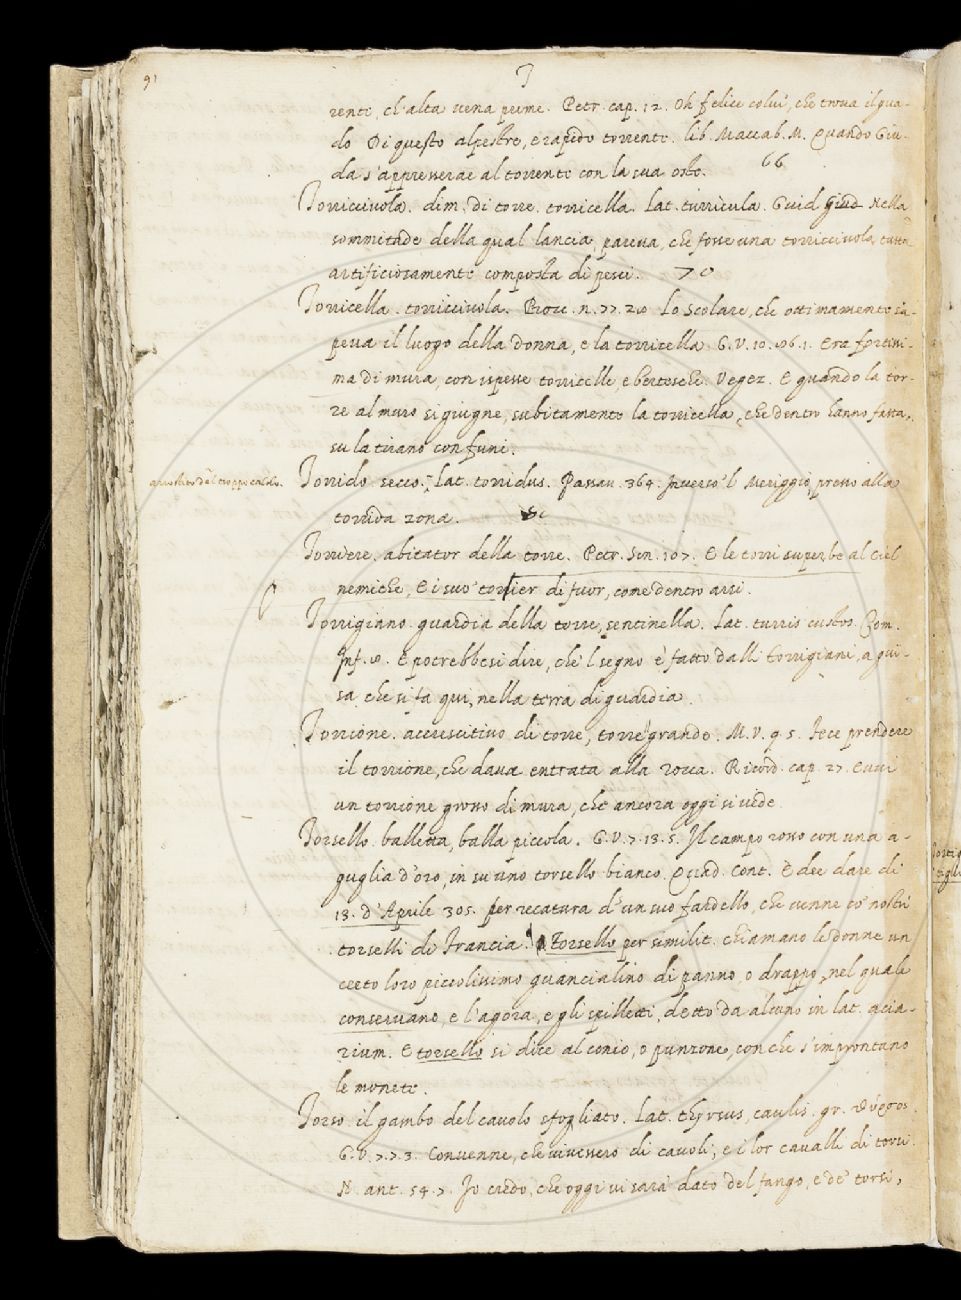 91
T
rente, ch'alta vena preme. Petr. cap. 12. Oh felice colui, che trova il gua-
do Di questo alpestre, e rapido torrente. lib. Maccab. M. Quando Giu-
da s'appresserae al torrente con la sua oste.
66
Torricciuola. dim. di torre. torricella. Lat. turricula. Guid Giud Nella
sommitade della qual lancia, pareva, che fosse una torricciuola tutta
artificiosamente composta di pesci. 70
Torricella. torricciuola. Bocc. n. 77. 20 Lo Scolare, che ottimamente sa-
peva il luogo della donna, e la torricella G. V. 10. 1. Era fortissi-
ma di mura, con ispesse torricelle, e bertesche. Vegez. E quando la tor-
re al muro si giugne, subitamente la torricella, che dentro hanno fatta,
su la tirano con funi.
arrostito dal troppo caldo.
Torrido secco. Lat. torridus. Passav. 364. Inverso 'l Meriggio, presso alla
torrida zona.
Torriere. abitator della torre. Petr. Son. 107. E le torri superbe al Ciel
nemiche, E i suo' torrier di fuor, come dentro arsi.
Torrigiano. guardia della torre, sentinella. Lat. turris custos. Com.
Inf. 8. E potrebbesi dire, che 'l segno è fatto dalli torrigiani, a gui-
sa, che si fa qui, nella terra di guardia.
Torrione. accrescitivo di torre, torre grande. M. V. 9 5. Fece prendere
il torrione, che dava entrata alla rocca. Ricord. cap. 27. Evvi
un torrione grosso di mura, che ancora oggi si vede
Torsello. balletta, balla piccola. G. V. 7. 13. 5. Il campo rosso con una a-
guglia d'oro, in su uno torsello bianco. Quad. Cont. E dee dare di
13. d'Aprile 305. per recatura d'un suo fardello, che venne co' nostri
torselli di Francia. Torsello per similit. chiamano le donne un
certo loro piccolissimo guancialino di panno o drappo, nel quale
conservano, e l'agora, e gli spilletti, detto da alcuno in lat. acia-
rium. E torsello si dice al conio, o punzone, con che s'improntano
le monete.
Torso il gambo del cavolo sfogliato. Lat. thyrsus, caulis. gr. θύρσος.
G. V. 7. 7 3. Convenne, che vivessero di cavoli, e i lor cavalli di torsi.
N. ant. 54. 7. Io credo, che oggi vi sarà dato del fango, e de' torsi,